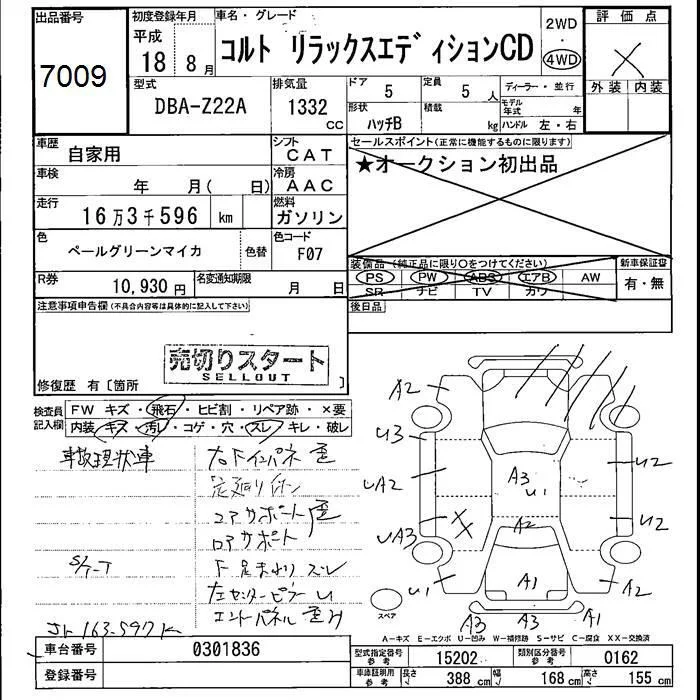 出品番号
7009
初度登録年月
平成
18年 8月
車名・グレード
コルト リラックスエディションCD
2WD
・
4WD
評価点
×
外装 内装
型式
DBA-Z22A
排気量
1332 cc
ドア 5
定員 5 人
形状 ハッチB
積載 kg
ディーラー・並行
モデル年式 年
ハンドル 左・右
車歴
自家用
シフト
CAT
車検
年 月( 日)
冷房
AAC
走行
16万3千596 km
燃料
ガソリン
色
ペールグリーンマイカ
色替
色コード
F07
R券
10,930 円
名変通知期限
月 日
セールスポイント(正常に機能するものに限ります)
★オークション初出品
装備品 (純正品に限り○をつけてください)
PS PW ABS エアB AW
SR ナビ TV カワ
新車保証書
有・無
後日品
注意事項申告欄(不具合内容等は具体的に記入して下さい)
売切りスタート
SELLOUT
修復歴 有〔箇所 〕
検査員記入欄
FW キズ・飛石・ヒビ割・リペア跡・×要
内装・キズ・汚レ・コゲ・穴・スレ・キレ・破レ
事故現状車
右下インパネ 歪
コアサポート 歪
ロアサポート
S/T-T
下足まわり スレ
左センターピラー U
エンドパネル 歪み
163.597K
A2
U3
UA2
UA3
U1
A3
U1
A2
A1
U2
U2
A2
A3
A3
A1
スペア
A-キズ E-エクボ U-凹み W-補修跡 S-サビ C-腐食 XX-交換済
車台番号
0301836
登録番号
型式指定番号 参考
15202
類別区分番号 参考
0162
車庫証明用 参考
長さ 388 cm
幅 168 cm
高さ 155 cm